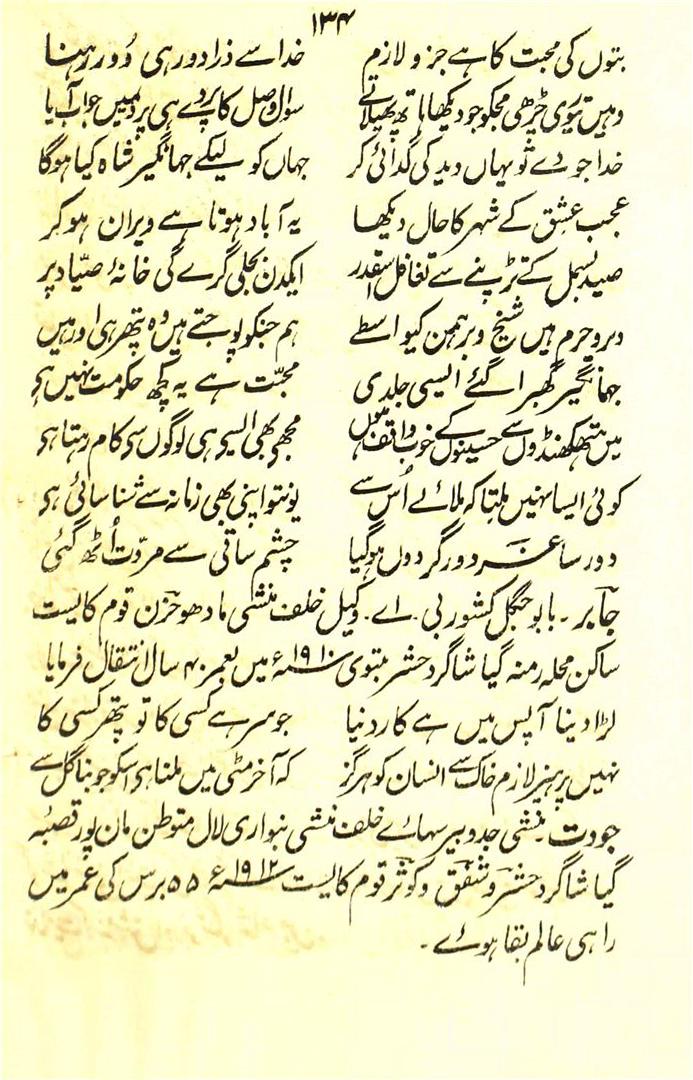 ۱۳۴
بتوں کی محبت کا ہے جزو لازم خدا سے ذرا دور ہی دُور رہنا
وہیں تیوری چڑھی مجکو جو دیکھا ہاتھ پھیلاتے سوال وصل کا پردے ہی پردہ میں جواب آیا
خدا جو دے تو یہاں دید کی گدائی کر جہاں کو لیکے جہانگیر شاہ کیا ہوگا
عجب عشق کے شہر کا حال دیکھا یہ آباد ہوتا ہے ویران ہو کر
صید بسمل کے تڑپنے سے تغافل اسقدر ایکدن بجلی گرے گی خانۂ صیّاد پر
دیر و حرم ہیں شیخ و برہمن کیواسطے ہم جنکو پوجتے ہیں وہ پتھر ہی اور ہیں
جہانگیر گھبرا گئے ایسی جلدی محبّت ہے یہ کچھ حکومت نہیں ہی
میں ہتھکھنڈوں سے حسینوں کے خوب واقف ہوں مجھے بھی ایسے ہی لوگوں سے کام رہتا ہی
کوئی ایسا نہیں ملتا کہ ملائے اُس سے یونتو اپنی بھی زمانہ سے شناسائی ہی
دور ساغر دور گردوں ہوگیا چشم ساقی سے مروّت اُٹھ گئی
جابر ۔ بابو جنگل کشور بی ۔ اے ۔ وکیل خلف منشی مادھو حزن قوم کایست
ساکن محلہ رمنہ گیا شاگرد حشر متوی ۱۹۱۰ء میں بعمر ۴۰ سال انتقال فرمایا
لڑا دینا آپس میں ہے کار دنیا جو سر ہے کسی کا تو پتھر کسی کا
نہیں پرہیز لازم خاک سے انسان کو ہرگز کہ آخر مٹی میں ملنا ہی اسکو جو بنا گل سے
جودت ۔ منشی جدوبیر سہائے خلف منشی بنواری لال متوطن مان پور قصبۂ
گیا شاگرد حشر و شفق و کوثر قوم کایست ۱۹۱۲ء ۵۵ برس کی عمر میں
راہی عالم بقا ہوئے ۔